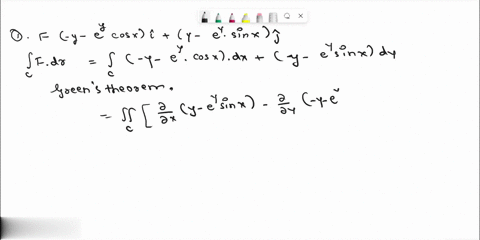 ①. F (-y - e^y cosx) î + (y - e^y. sinx) ĵ
∫_C F.dr = ∫_C (-y - e^y. cosx).dx + (-y - e^y sinx) dy
Green's theorem.
= ∬_C [ ∂/∂x (y - e^y sinx) - ∂/∂y (-y - e^y